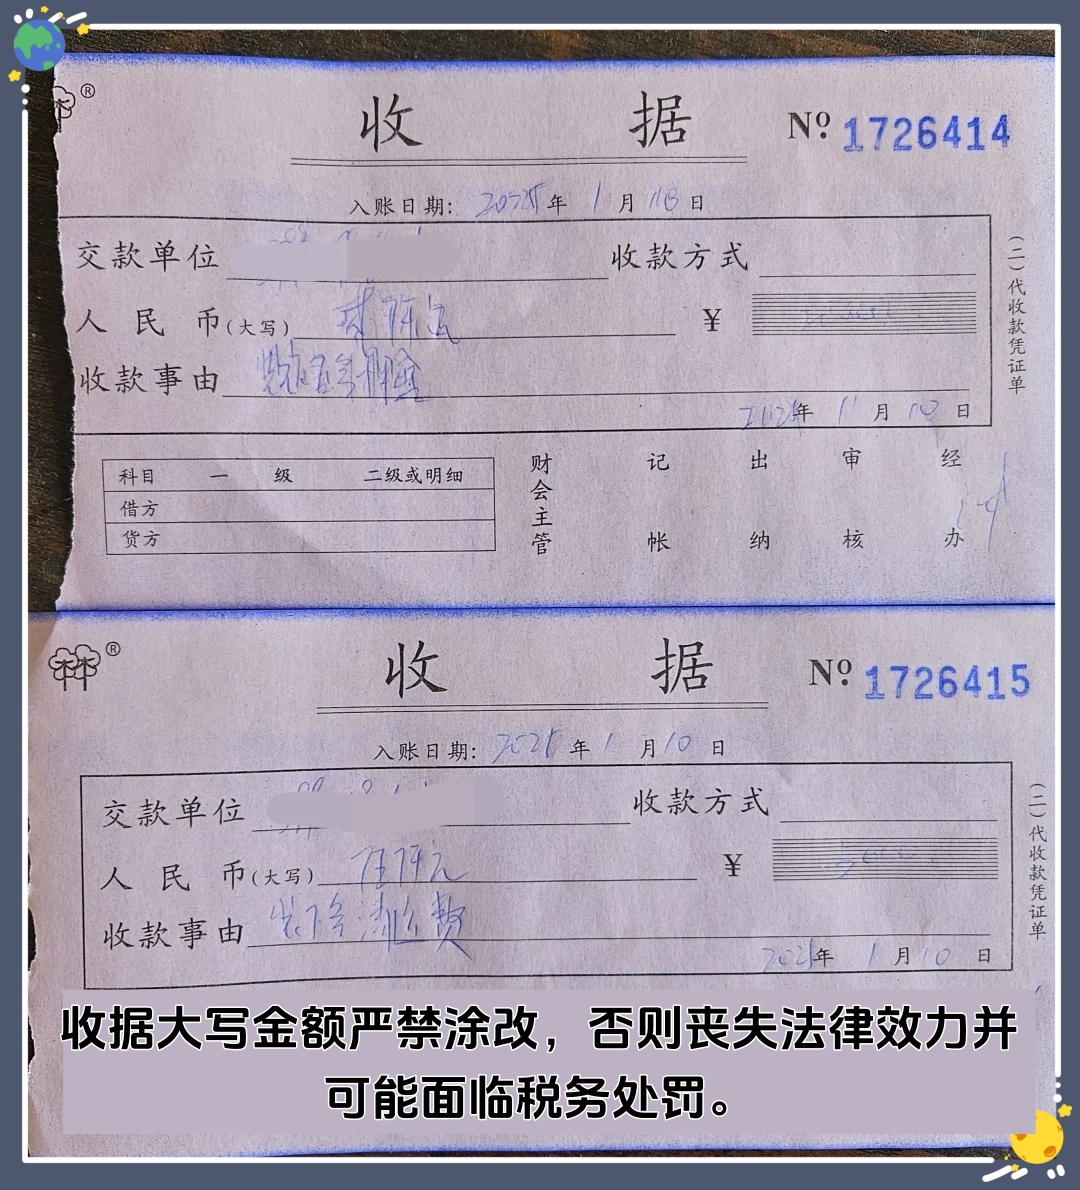 ®
收 据 Nº 1726414
入账日期: 2025年 1月10日
交款单位 收款方式
人民币(大写) ¥
收款事由
年 月 10 日
(二)代收款凭证单
科目 一级 二级或明细
借方
货方
财会主管 记帐 出纳 审核 经办
®
收 据 Nº 1726415
入账日期: 2025年 1月10日
交款单位 收款方式
人民币(大写) 伍仟元 ¥ 5000
收款事由 费
2025年 1月10日
(二)代收款凭证单
收据大写金额严禁涂改，否则丧失法律效力并
可能面临税务处罚。